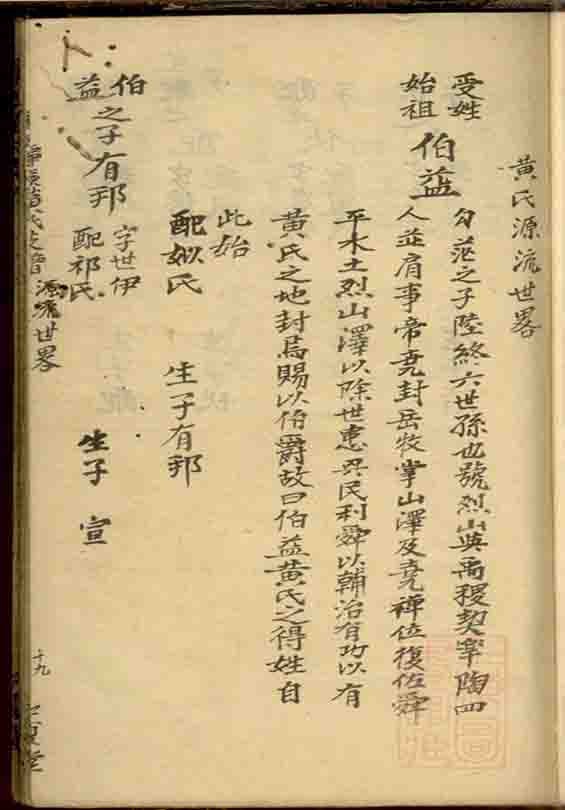 黄氏源流世畧
受姓
始祖
伯益
勾茫之子陸終六世孫也號烈山與禹稷契宰陶四
人並肩事帝堯封岳牧掌山澤及堯禅位復佐舜
平水土烈山澤以除世患興民利舜以輔治有功以有
黄氏之地封焉賜以伯爵故曰伯益黄氏之得姓自
此始
配姒氏
生子有邦
伯益之子有邦
字世伊
配祁氏
生子宣
源流世畧
十九